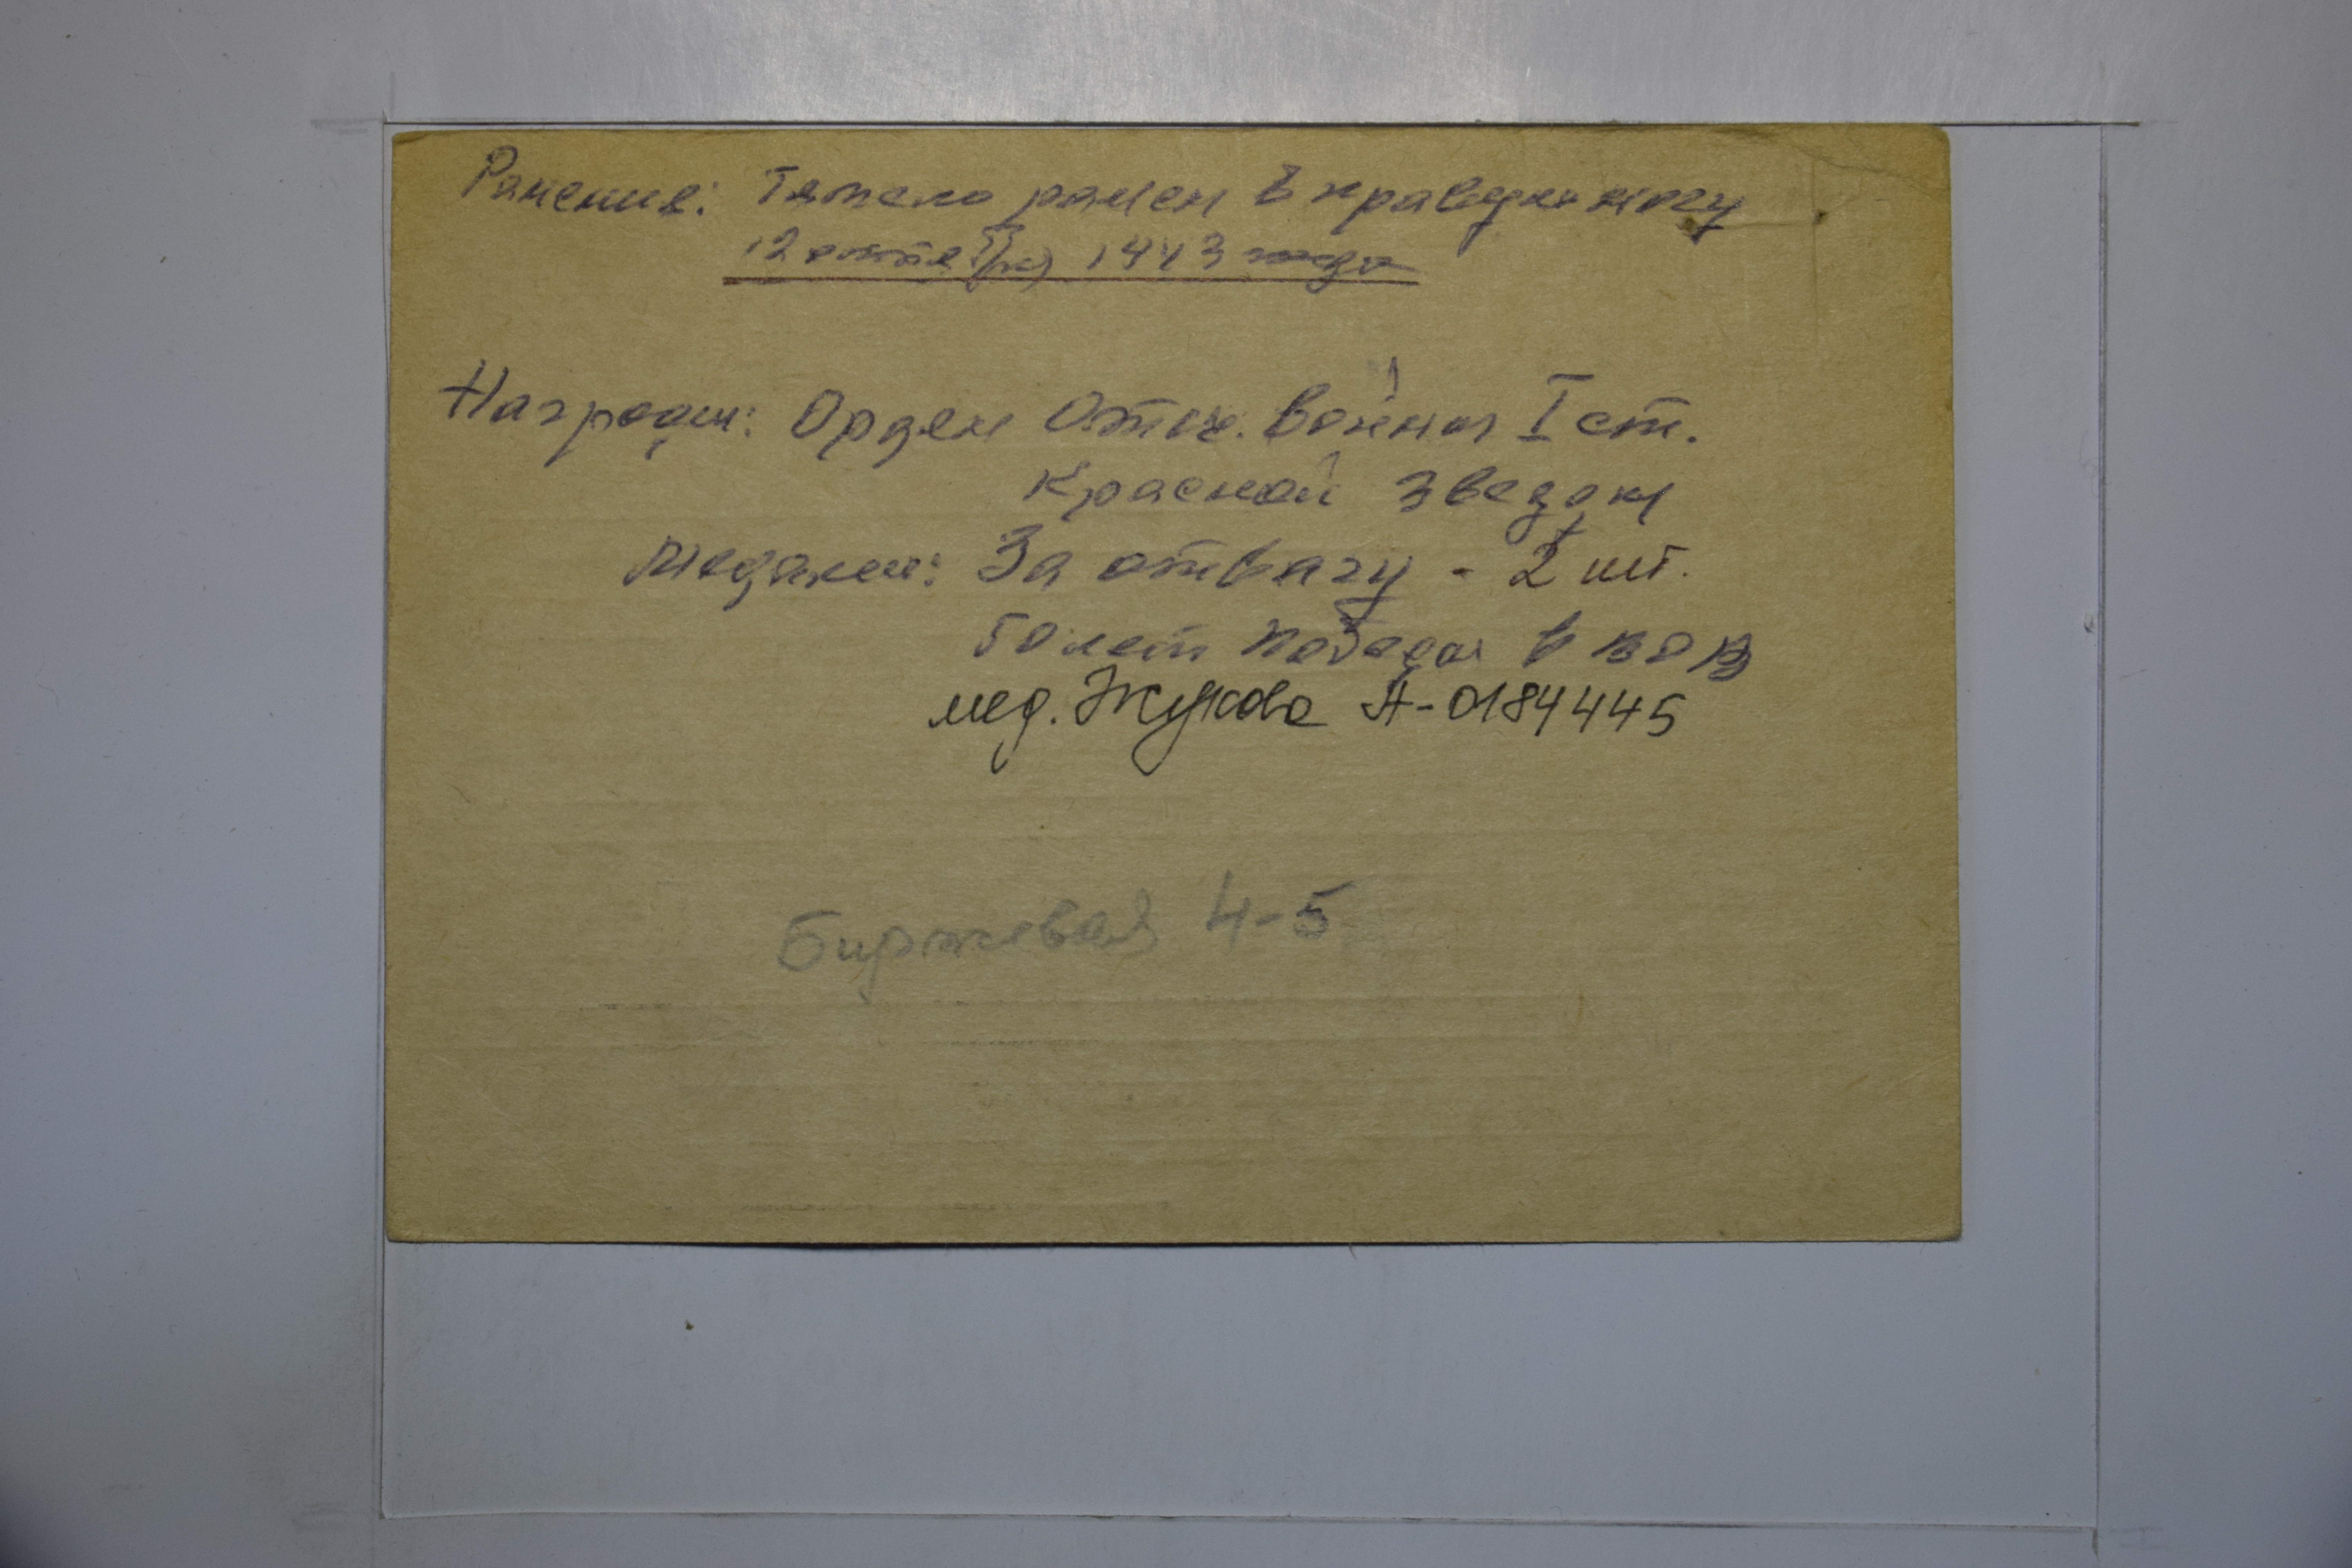 Ранения: Тяжело ранен в правую ногу
12 октября 1943 года
Награды: Орден Отеч. Войны I ст.
Красной звезды
Медали: За отвагу - 2 шт.
50 лет победы в ВОВ
мед. Жукова А-0184445
Биржевая 4-5